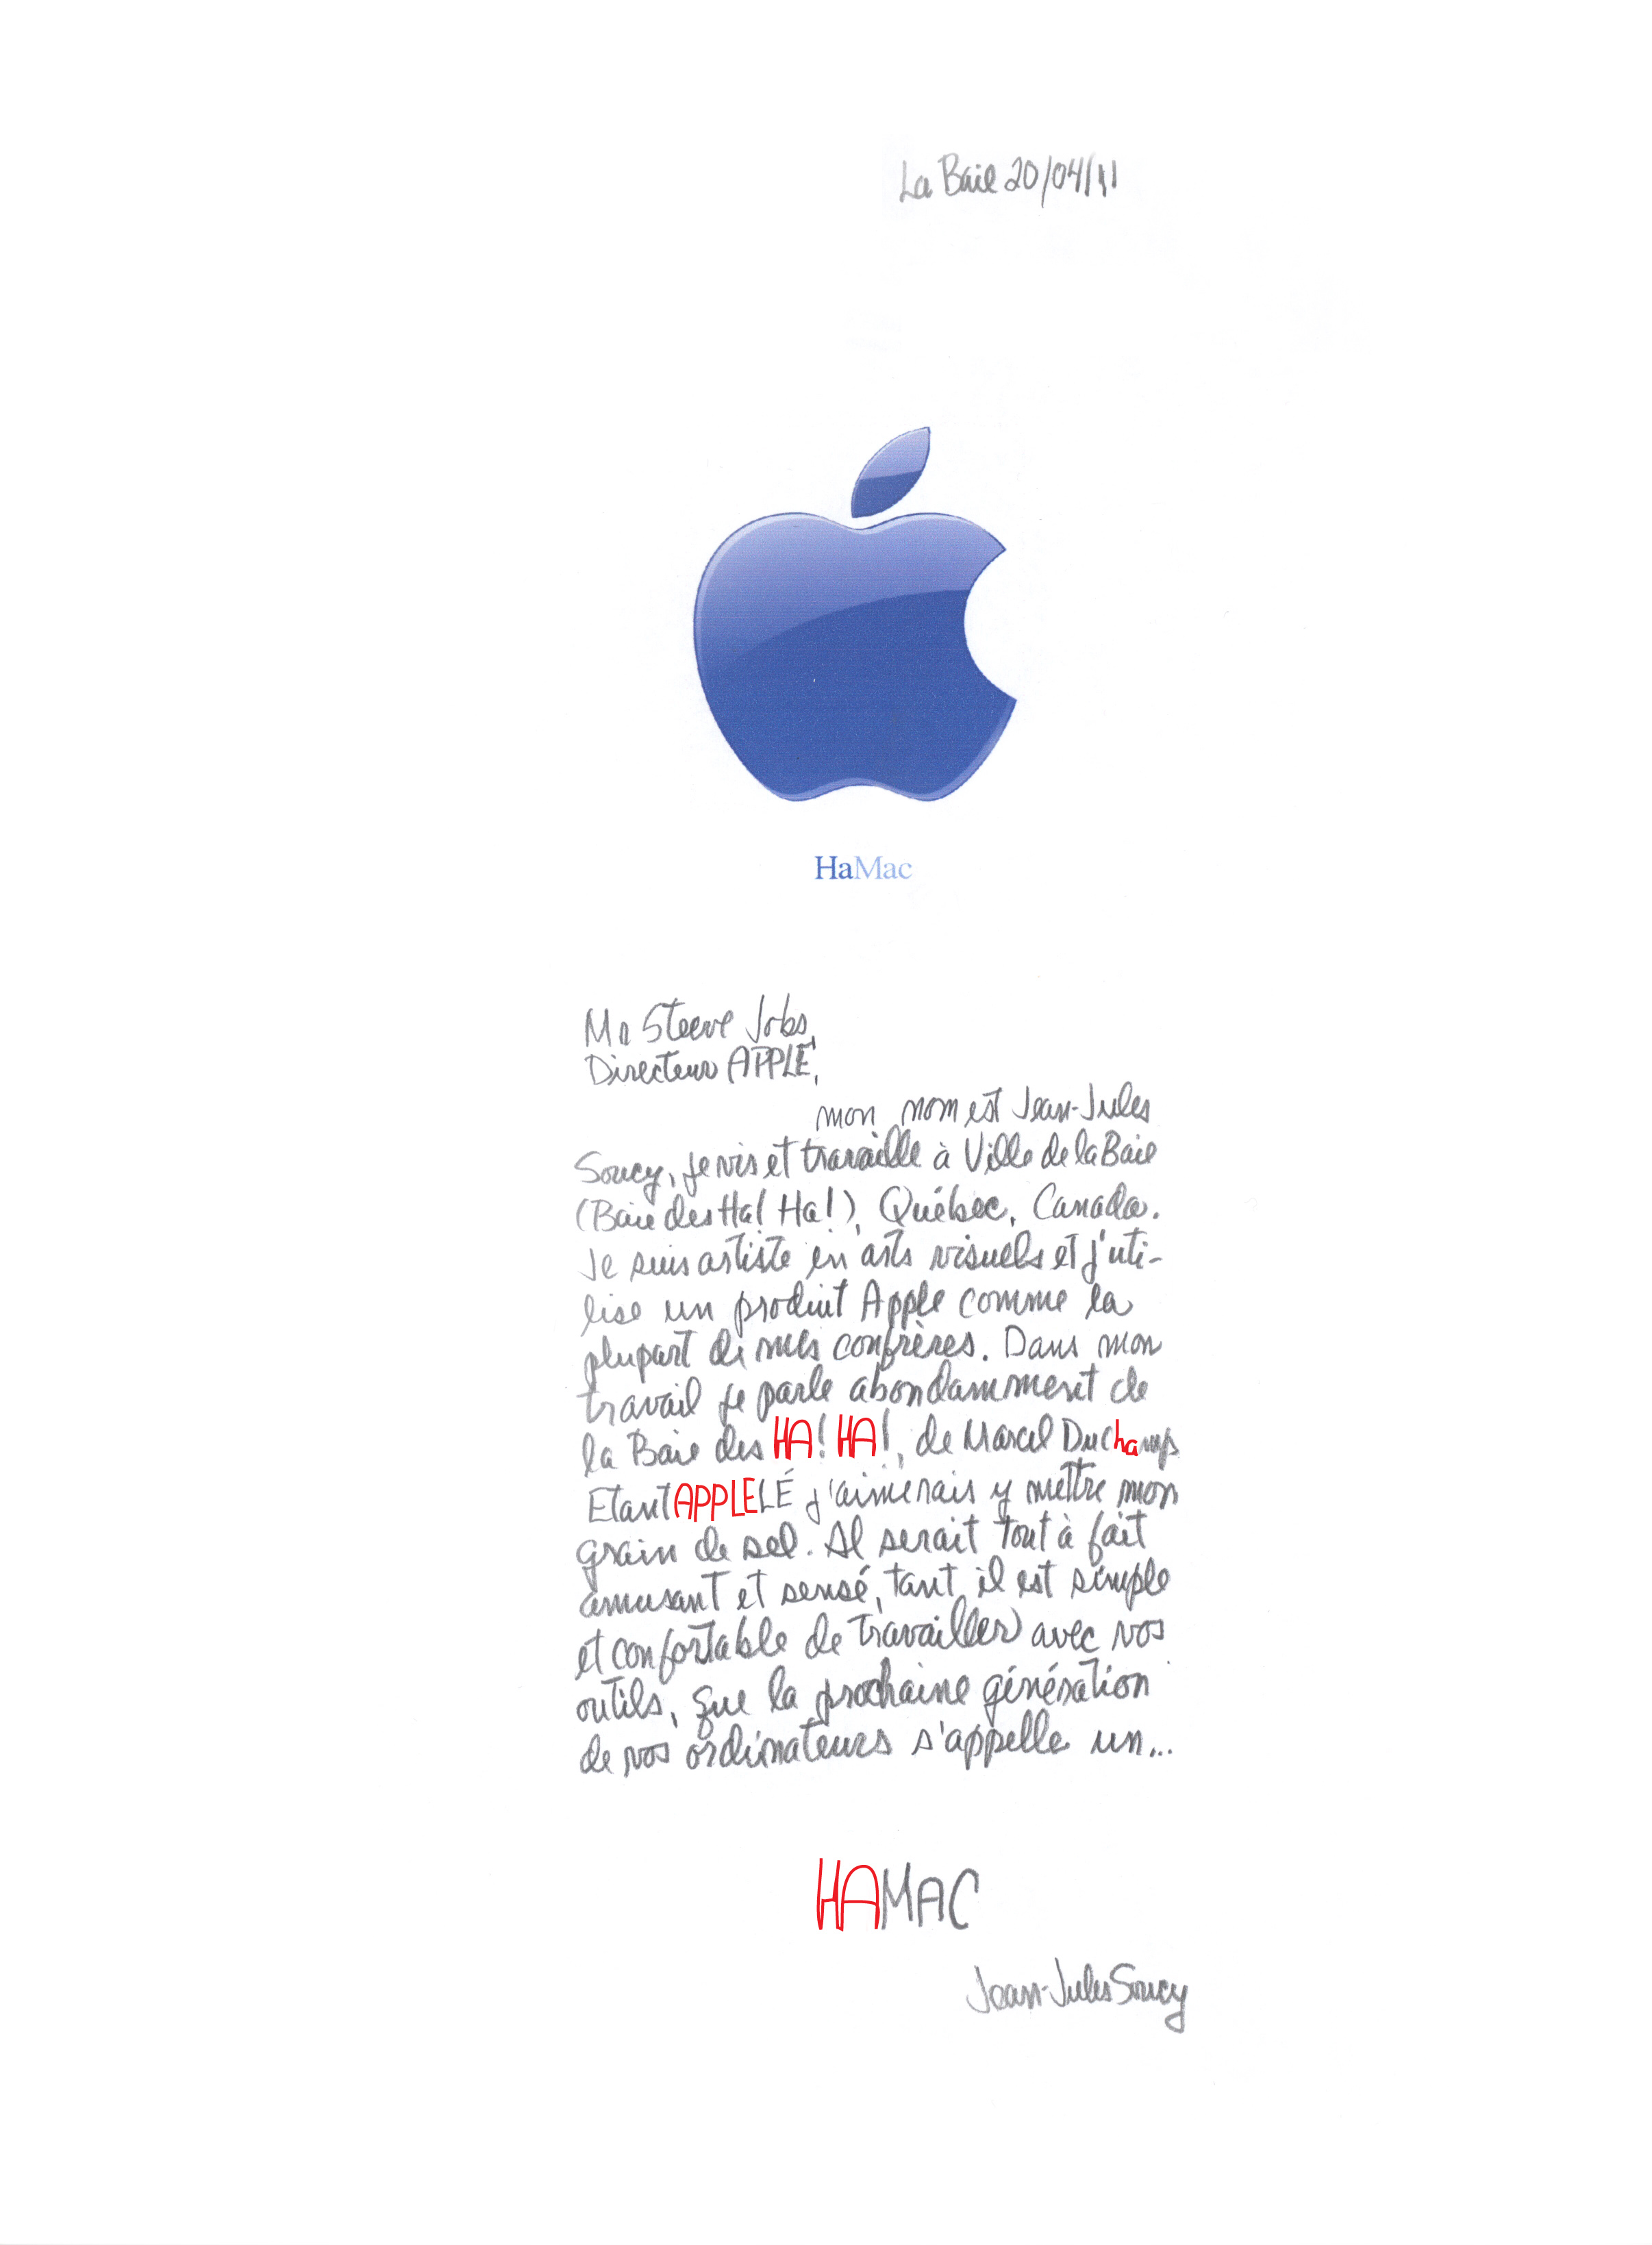 La Baie 20/04/11
HaMac
Mr Steeve Jobs,
Directeur APPLE,
mon nom est Jean-Jules
Soucy, je vis et travaille à Ville de la Baie
(Baie des Ha! Ha!), Québec, Canada.
Je suis artiste en arts visuels et j'uti-
lise un produit Apple comme la
plupart de mes confrères. Dans mon
travail je parle abondamment de
la Baie des HA! HA!, de Marcel Duchamp.
Etant APPLELÉ j'aimerais y mettre mon
grain de sel. Il serait tout à fait
amusant et sensé, tant il est simple
et confortable de travailler avec vos
outils, que la prochaine génération
de vos ordinateurs s'appelle un...
HAMAC
Jean-Jules Soucy